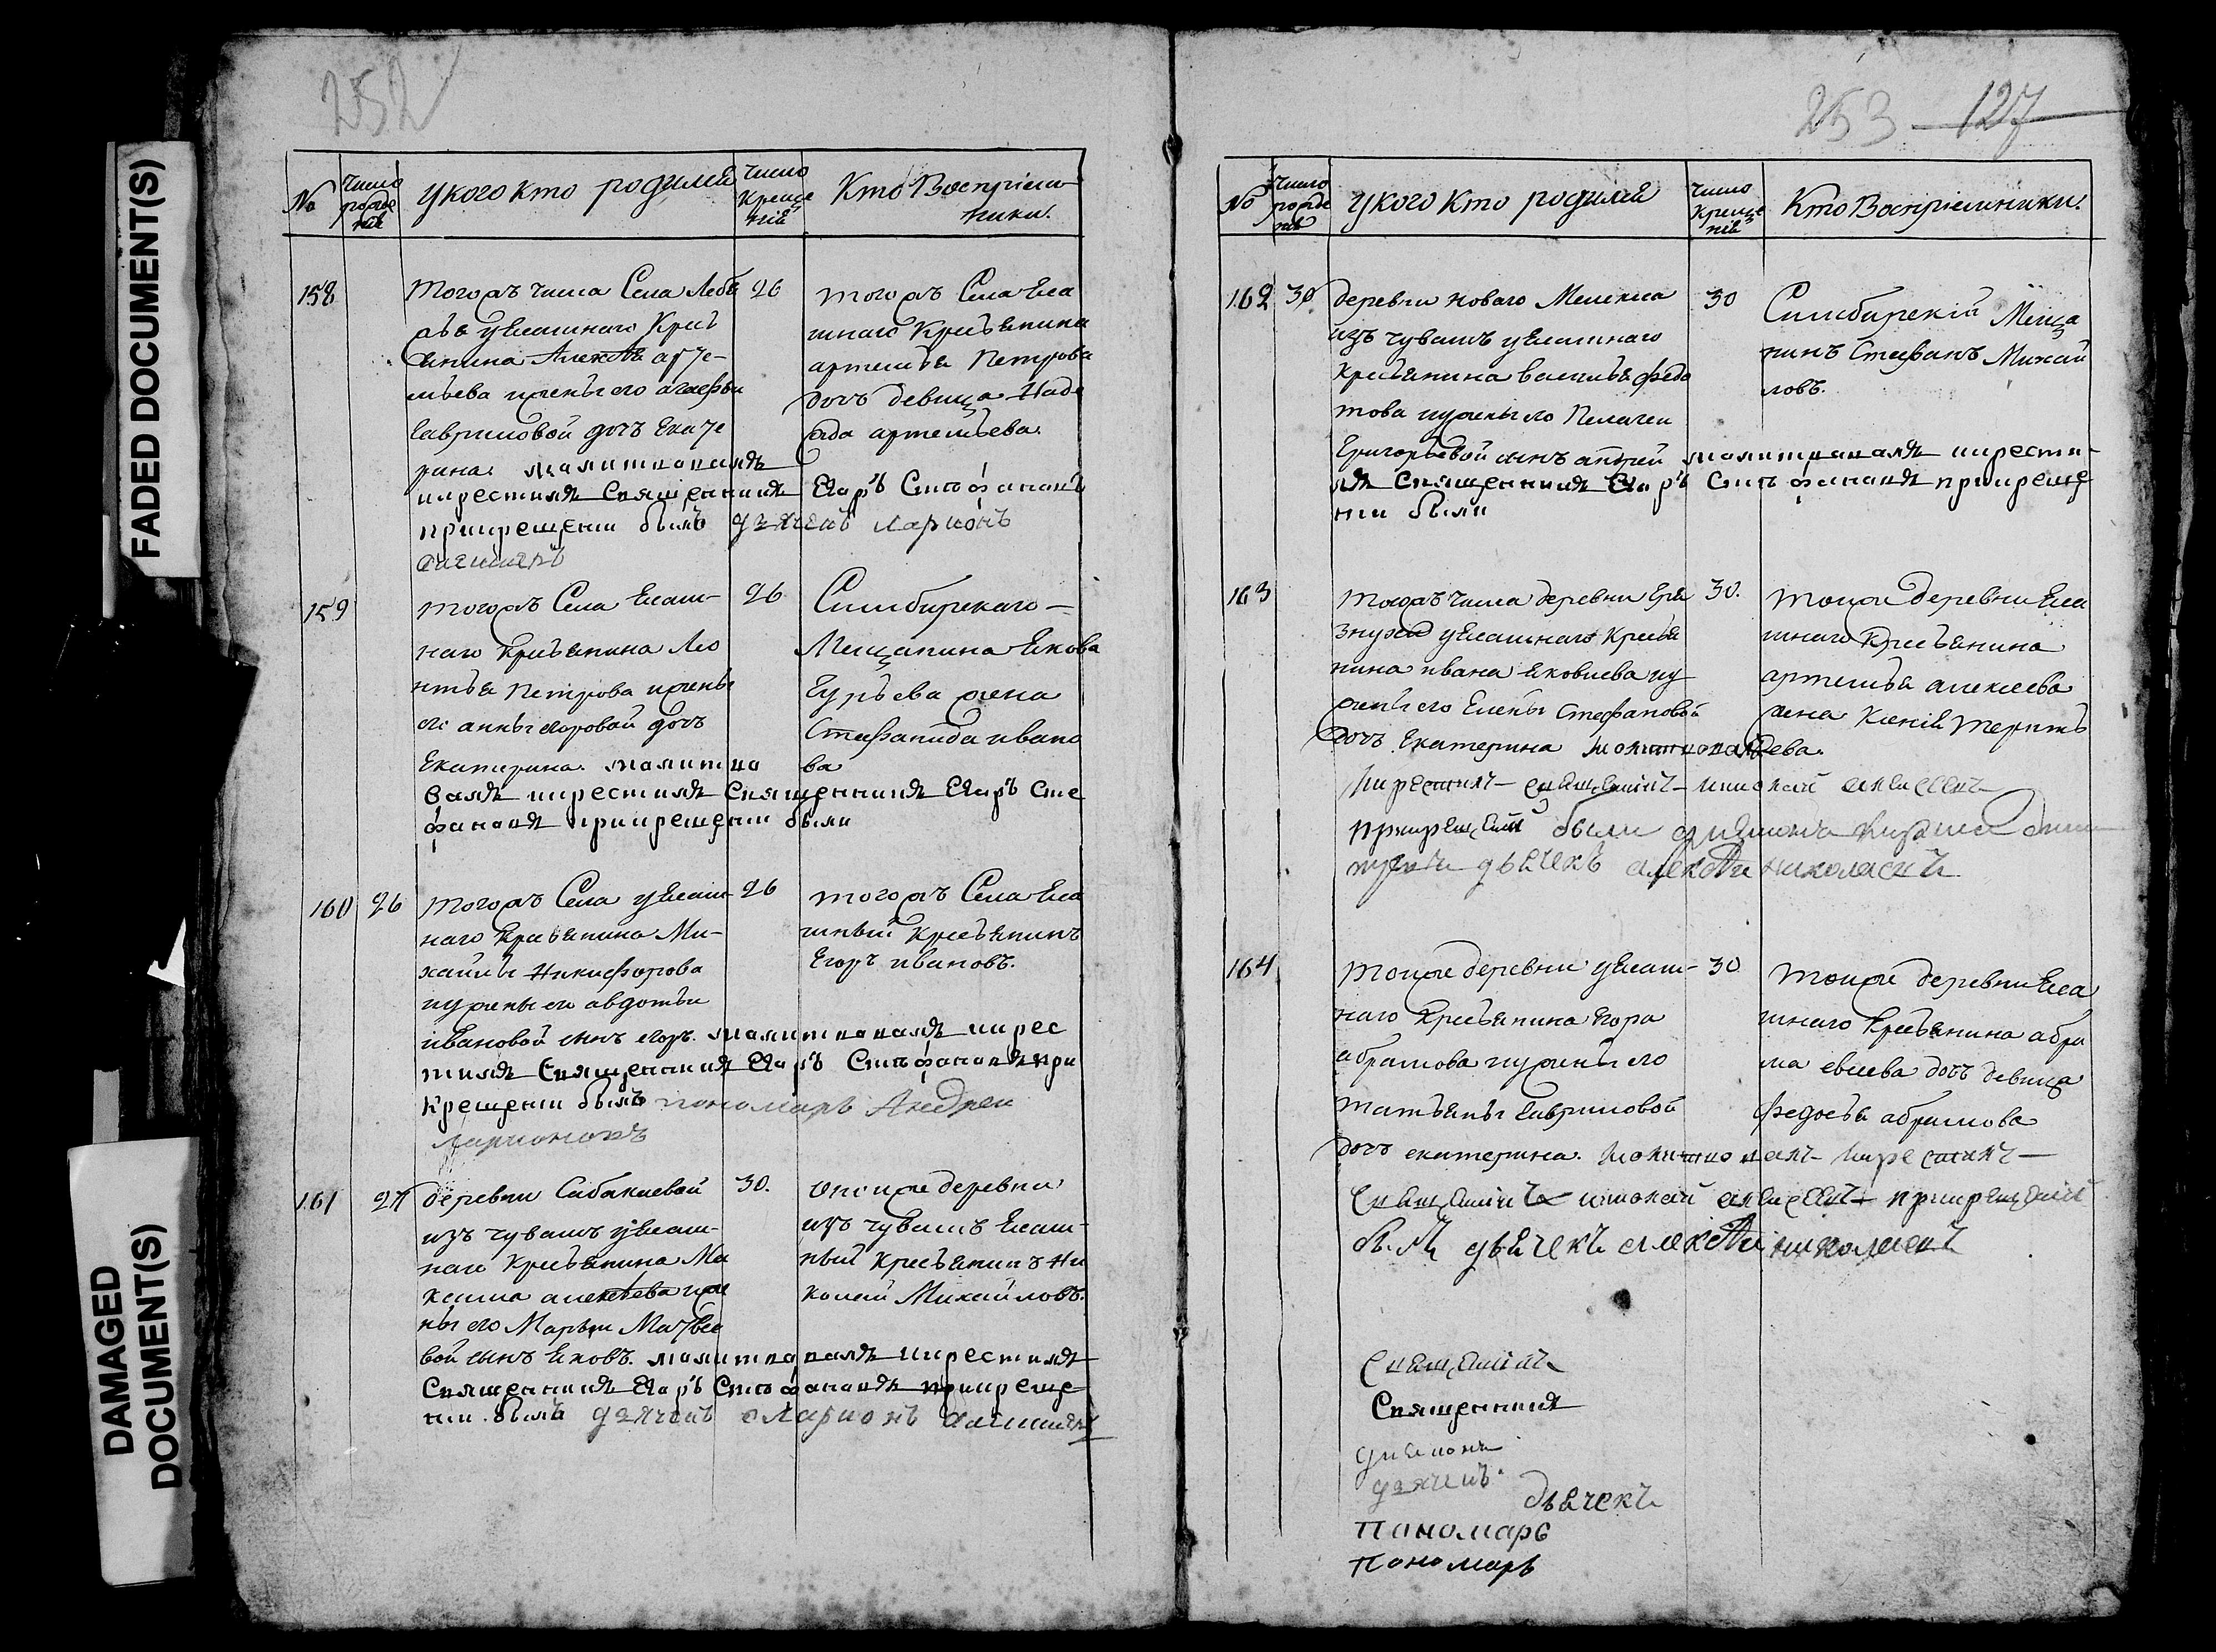 FADED DOCUMENT(S)
DAMAGED
DOCUMENT(S)
252
№
число рожде нія
у кого кто родился
число Креще нія
Кто Воспріем
ники.
158
тогожъ числа Села Лебя
26
жъя удельнаго Кресь
янина Алексея арте-
мьева ижены его агафьи
гавриловой дочь Екате
рина. молитвовалъ
икрестилъ Священникъ Егоръ Стефановъ
прикрещении былъ дьячекъ ларионъ
тогожъ Села Уде
льнаго Кресьянина
артемья Петрова
дочь девица Наде
жда артемьева.
159
тогожъ Села Удель-
26
наго Кресьянина Лео
нтья Петрова ижены
его анны егоровой дочь
Екатерина. молитво
валъ икрестилъ Священникъ Егоръ Сте
фановъ прикрещении были
Симбирскаго
Мещанина Якова
Гурьева жена
Стефанида ивано
ва
160
26
тогожъ Села уУдель
26
наго Кресьянина Ми-
хайлы Никифорова
ижены его авдотьи
ивановой сынъ егоръ. молитвовалъ икрес
тилъ Священникъ Егоръ Стефановъ при
крещении былъ пономарь Андреи
ларионовъ
тогожъ Села Уде
льный Кресьянинъ
Егоръ ивановъ.
161
27
деревни Сабакаевой
30.
изъ чувашъ уУдель-
наго Кресьянина Ма
ксима алексеева иже
ны его Марьи Матвее
вой сынъ Яковъ. молитвовалъ икрестилъ
Священникъ Егоръ Стефановъ прикреще
нии былъ дьячекъ Ларионъ
оной же деревни
изъ чувашъ Удель-
ный Кресьянинъ Ни
колай Михайловъ.
253 127
№
число рожде нія
у кого кто родился
число Креще нія
Кто Воспріемники.
162
30
деревни новаго Мелекеса
30
изъ чувашъ уУдельнаго
кресьянина василья федо
това ижены его Пелагеи
Григорьевой сынъ андрей молитвовалъ икрести-
лъ Священникъ Егоръ Стефановъ прикреще
нии были
Симбирскій Меща
нинъ Стефанъ Михай
ловъ.
163
тогожъ числа деревни Гря
30.
знухи уУдельнаго Кресья
нина ивана яковлева иу
жены его Елены Стефановой
дочь Екатерина молитвовалъ
икрестилъ священникъ николай алексеевъ
прикрещении были диаконъ
дьячекъ алексей николаевъ
тойже деревни Уде
льнаго Кресьянина
артемья алексеева
жена Ксенія терентъ
ева.
164
тойже деревни уУдель-
30
наго Кресьянина Егора
абрамова иужены его
татьяны гавриловой
дочь екатерина. молитвовалъ икрестилъ
священникъ николай алексеевъ прикрещении
былъ дьячекъ алексей николаевъ
тойже деревни Уде
льнаго Кресьянина абра
ма евсеева дочь девица
федосья абрамова
священникъ
Священникъ
диаконъ
дьячекъ
дьячекъ
Пономарь
Пономарь